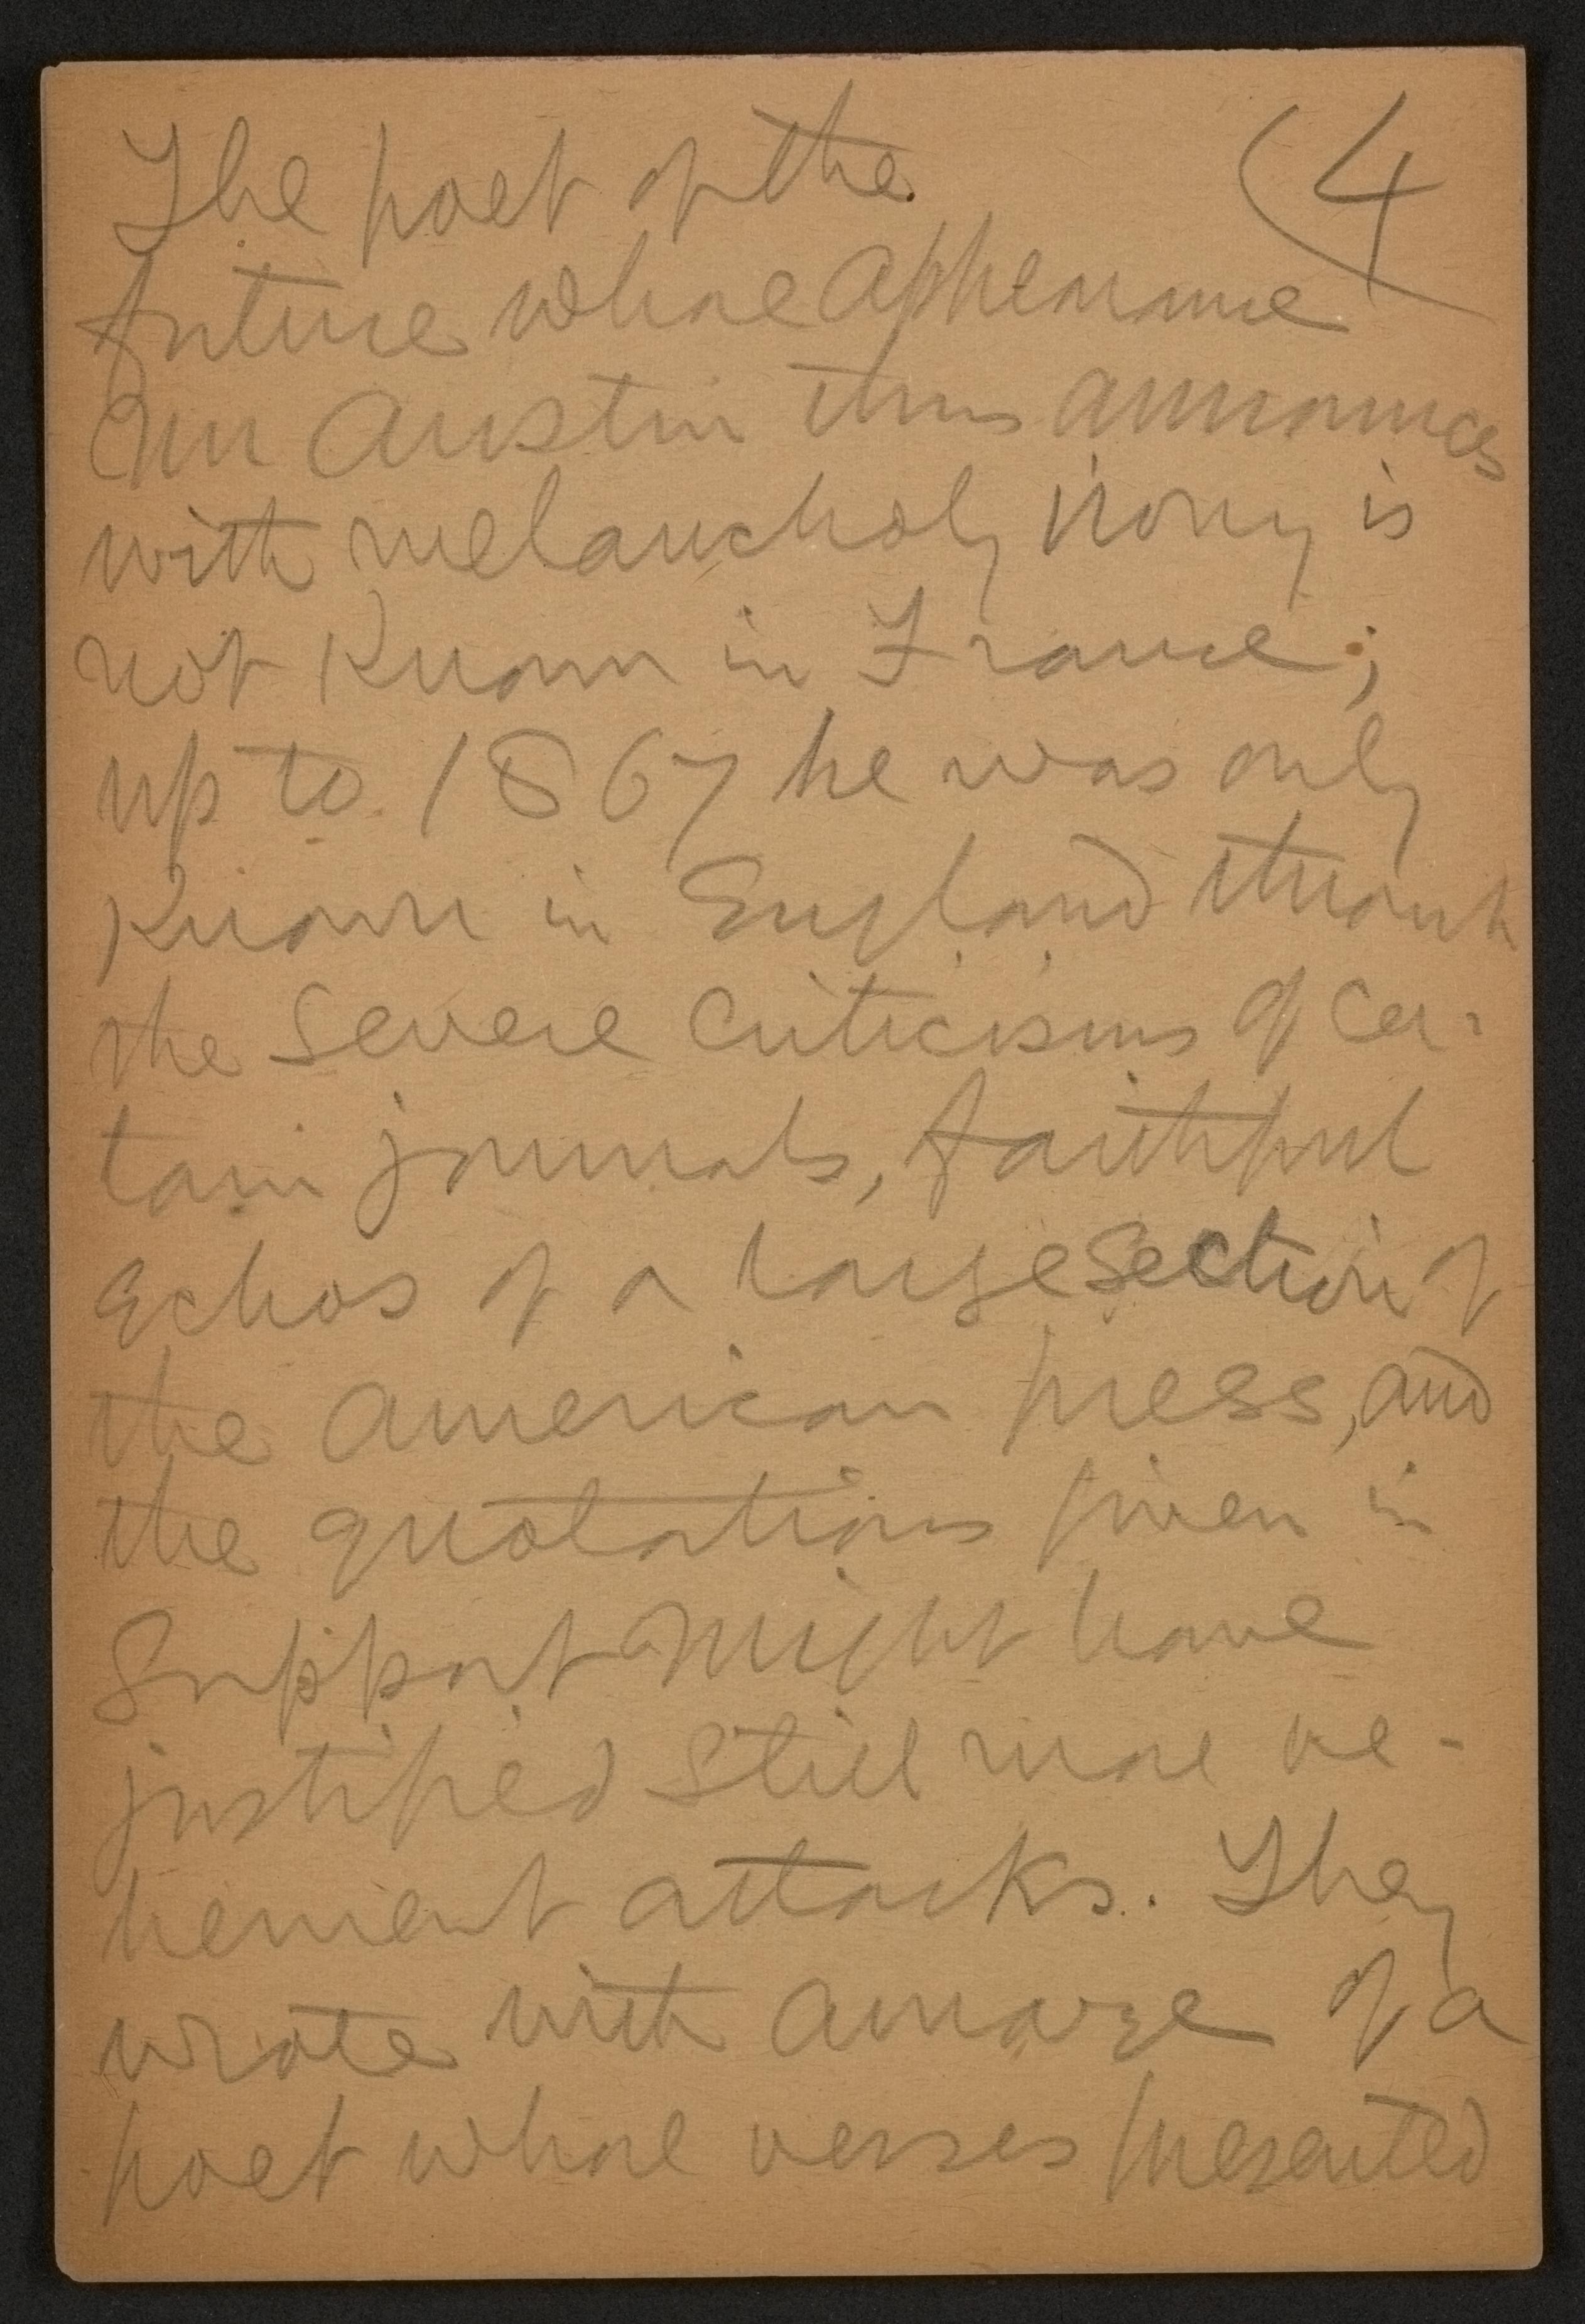 The poet of the (4
future whose appearance
Mr Austin thus announces
with melancholy irony is
not Known in France;
up to 1867 he was only
Known in England through
the severe criticisms of cer-
tain journals, faithful
echos of a large section of
the American press, and
the quotations given in
support might have
justified still more ve-
hement attacks. They
wrote with amaze of a
poet whose verses presented